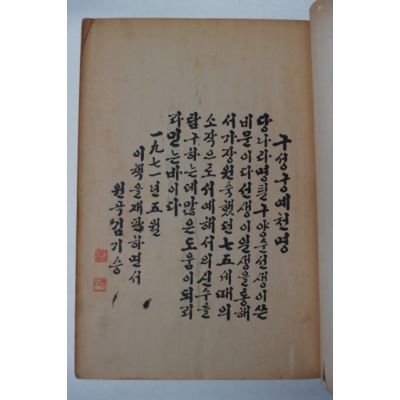 구성궁예천명
당나라명필구양순선생이쓴
비문이다선생이일생을통해
서가장원숙했던七五세때의
소작으로서예해서의진수를
탐구하는데많은도움이되리
라믿는바이다
一九七一년五월
이책을재판하면서
원곡김기승